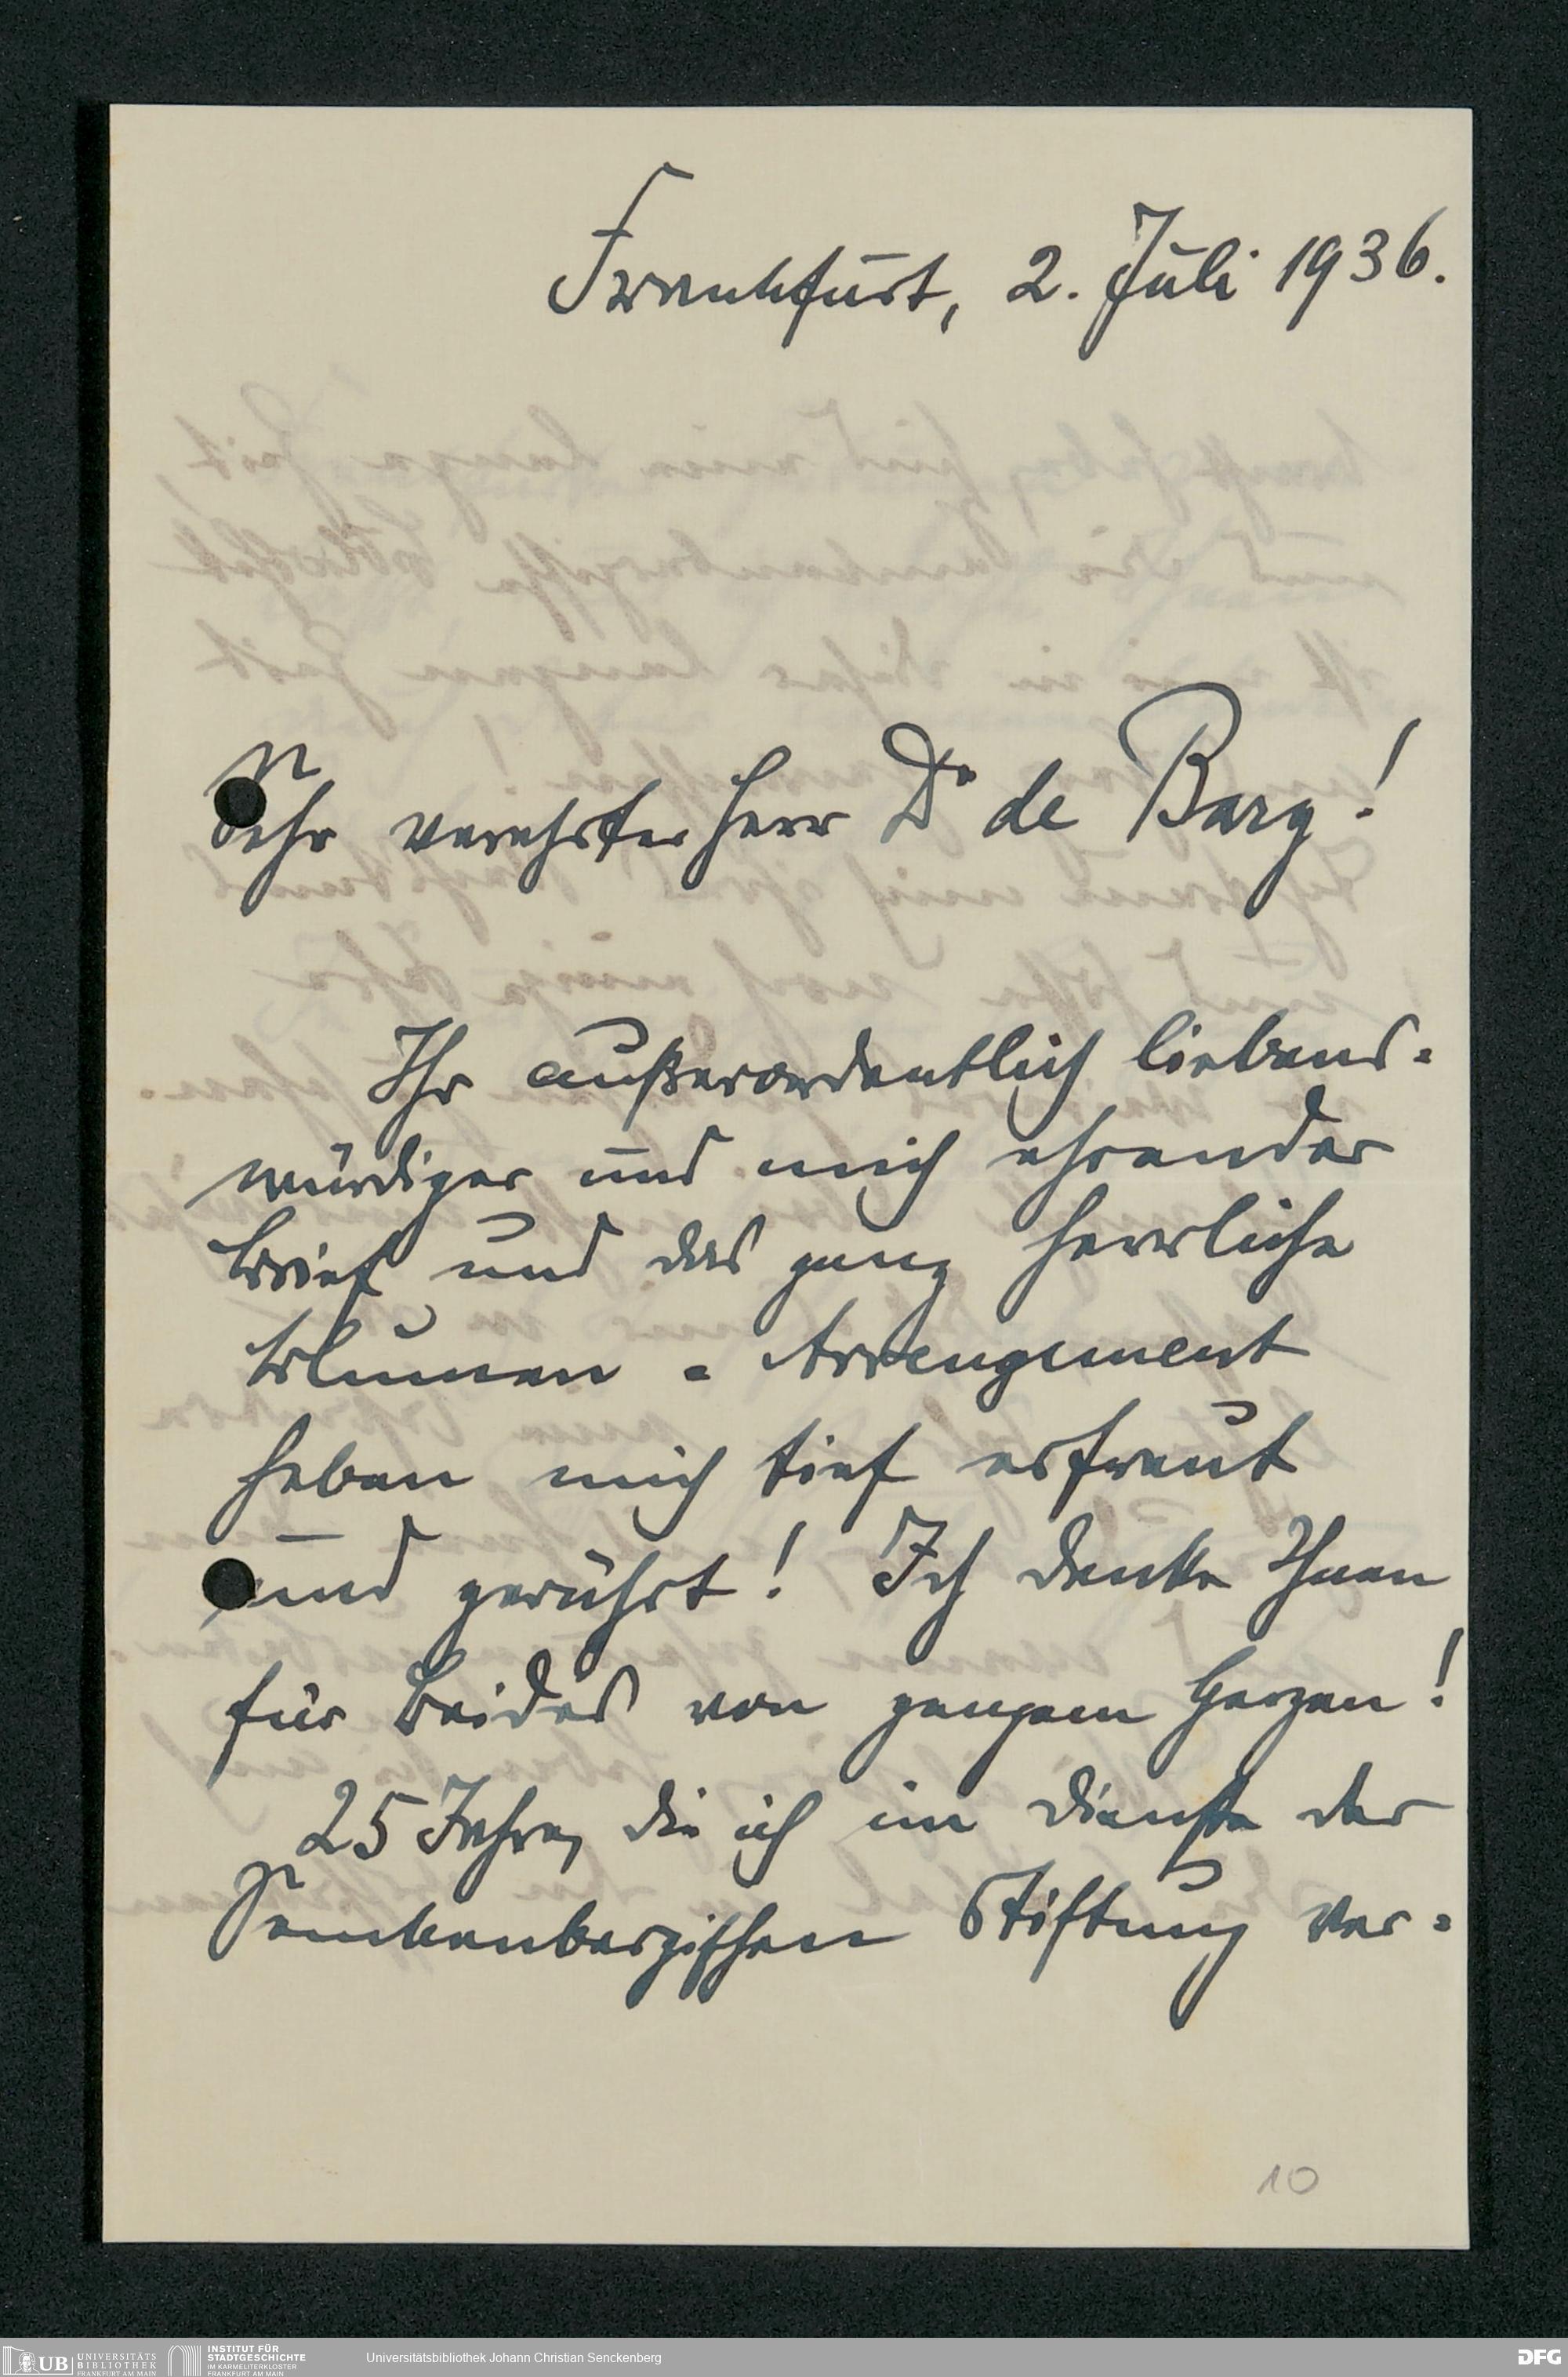 Frankfurt, 2. Juli 1936.
Sehr verehrter Herr Dr de Bary!
Ihr außerordentlich liebens-
würdiger und mich ehrender
Brief und das ganz herrliche
Blumen-Arrangement
haben mich tief erfreut
und gerührt! Ich danke Ihnen
für Beides von ganzem Herzen!
25 Jahre, die ich im Dienste der
Senckenbergischen Stiftung ver-
10
UB UNIVERSITÄTS
BIBLIOTHEK
FRANKFURT AM MAIN
INSTITUT FÜR
STADTGESCHICHTE
IM KARMELITERKLOSTER
FRANKFURT AM MAIN
Universitätsbibliothek Johann Christian Senckenberg
DFG